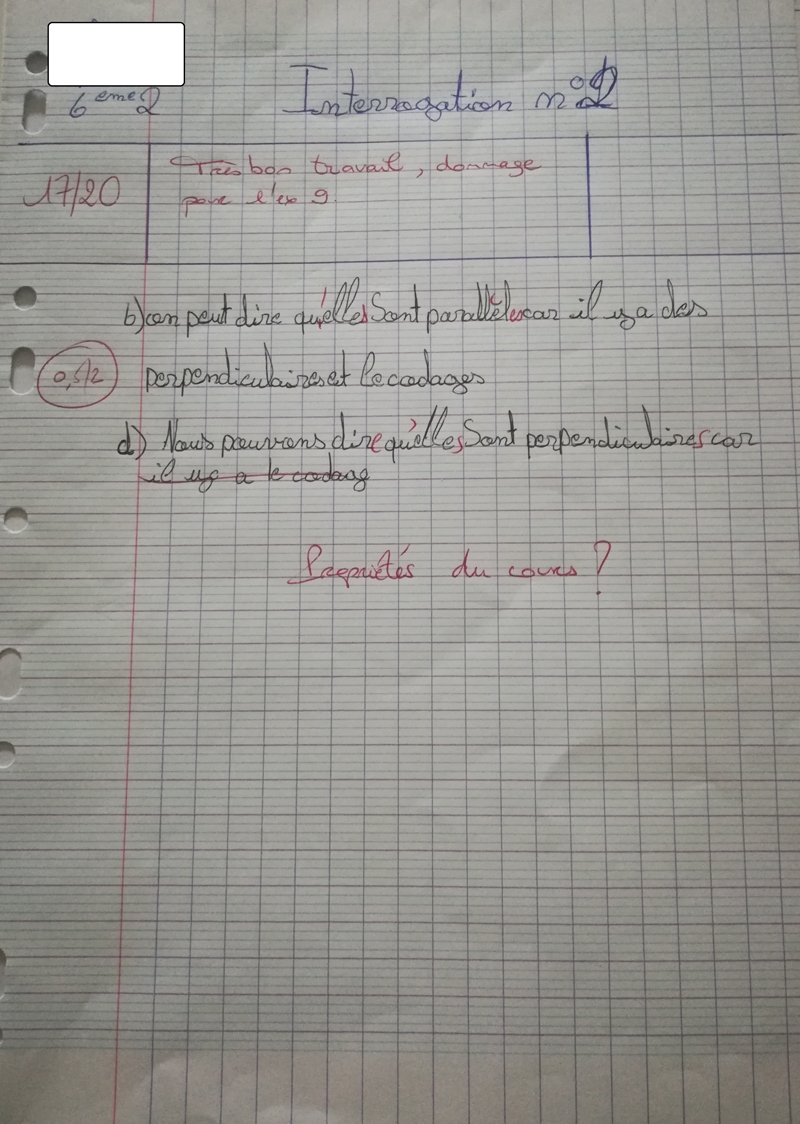 6eme2
Interrogation n°2
17/20
Très bon travail, dommage
pour l'ex 9.
b) on peut dire qu'elles sont parallèles car il y a des
0,5/2
perpendiculaires et le codages
d) Nous pouvons dire qu'elles sont perpendiculaires car
il y a le codag
Propriétés du cours ?